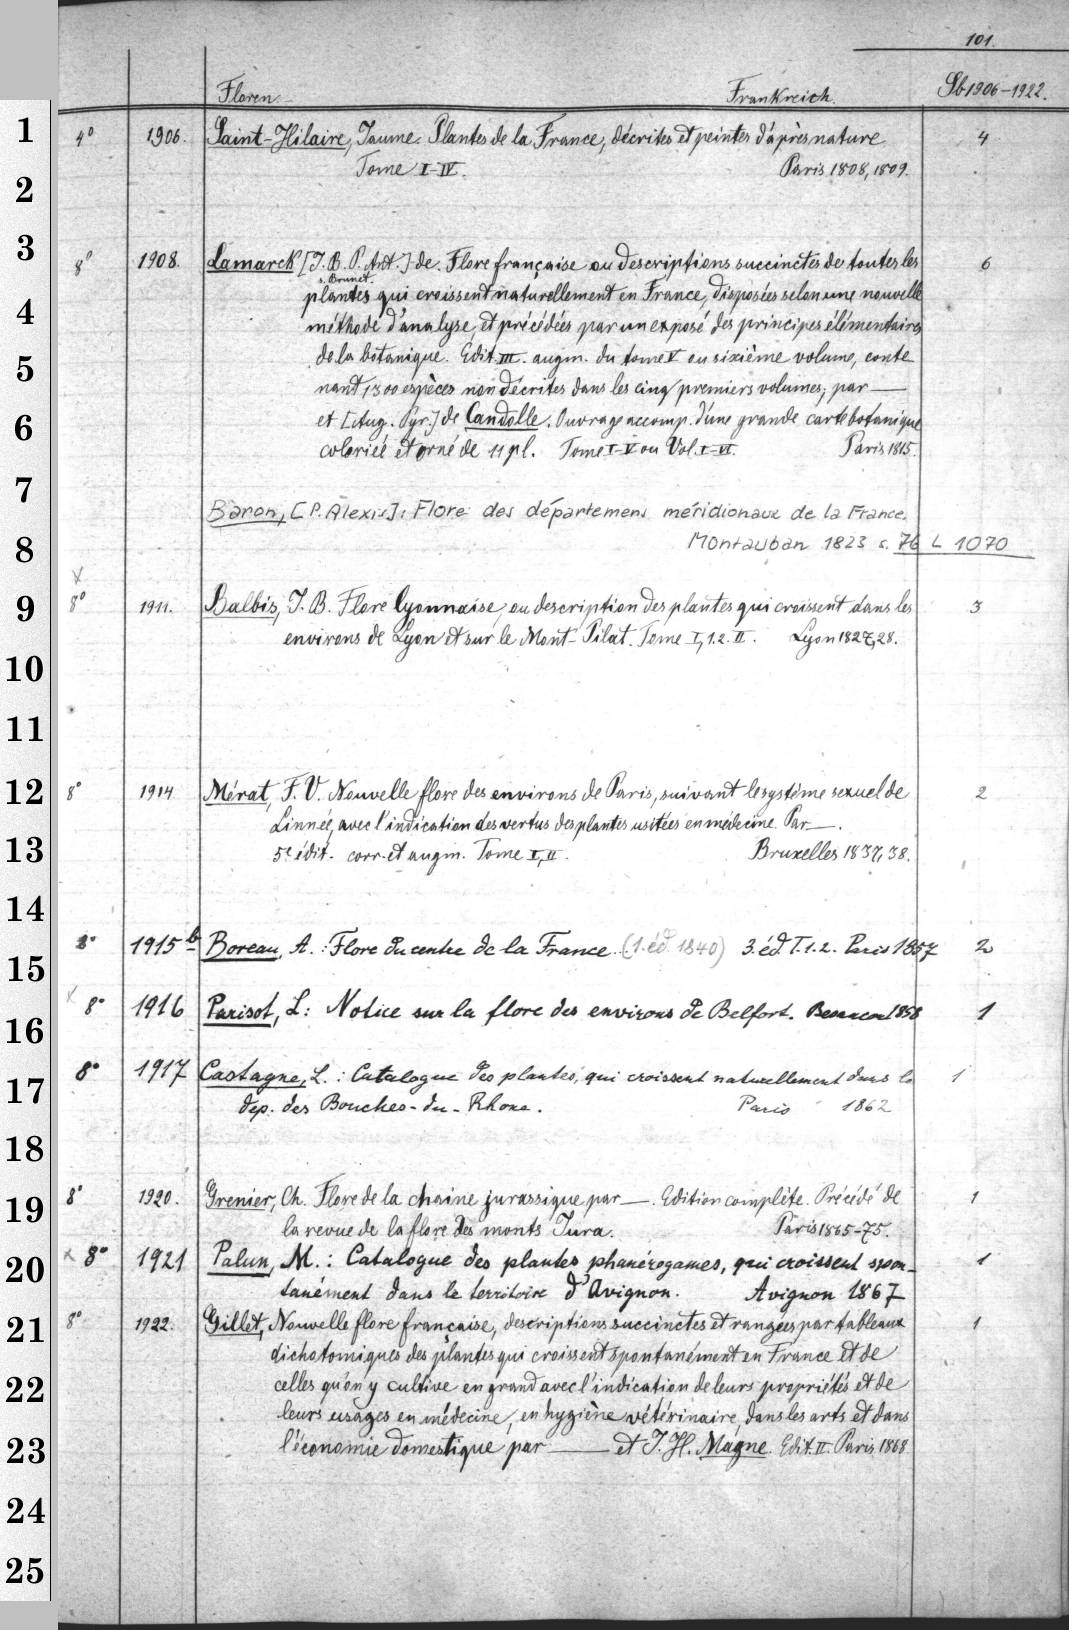 101.
Floren Frankreich. Sb 1906-1922.
1 4° 1906. Saint-Hilaire, Jaume. Plantes de la France, décrites et peintes d'après nature 4
2 Tome I-IV. Paris 1808, 1809.
3 8° 1908. Lamarck [J. B. P. Ant.] de. Flore française ou descriptions succinctes de toutes les 6
s. Brunet.
plantes qui croissent naturellement en France, disposées selon une nouvelle
4 méthode d'analyse, et précédées par un exposé des principes élémentaires
5 de la botanique. Edit. III. augm. du tome V ou sixième volume, conte
nant 1300 espèces non décrites dans les cinq premiers volumes; par —
6 et [Aug. Pyr.] de Candolle. Ouvrage accomp. d'une grande carte botanique
coloriée et orné de 11 pl. Tome I-V ou Vol. I-VI. Paris 1815.
7 Baron, [P. Alexis]: Flore des départemens méridionaux de la France.
8 Montauban 1823 s. 76 L 1070
x
9 8° 1911. Balbis, J. B. Flore lyonnaise, ou description des plantes qui croissent dans les 3
environs de Lyon et sur le Mont-Pilat. Tome I, 1.2. II. Lyon 1827, 28.
10
11
12 8° 1914 Mérat, F. V. Nouvelle flore des environs de Paris, suivant le système sexuel de 2
Linnée, avec l'indication des vertus des plantes usitées en médecine. Par —.
13 5e édit. corr. et augm. Tome I, II. Bruxelles 1837, 38.
14
15 8° 1915 b Boreau, A. : Flore du centre de la France. (1. éd. 1840) 3. éd. T. 1. 2. Paris 1857 2
16 x 8° 1916 Parisot, L: Notice sur la flore des environs de Belfort. Besancon 1858 1
17 8° 1917 Castagne, L. : Catalogue des plantes, qui croissent naturellement dans le 1
dep. des Bouches-du-Rhone. Paris 1862
18
19 8° 1920. Grenier, Ch. Flore de la chaine jurassique par —. Edition complète. Précédé de 1
la revue de la flore des monts Jura. Paris 1865-75.
20 x 8° 1921 Palun, M. : Catalogue des plantes phanérogames, qui croissent spon- 1
tanément dans le territoire d'Avignon. Avignon 1867
21 8° 1922. Gillet, Nouvelle flore française, descriptions succinctes et rangées par tableaux 1
dichotomiques des plantes qui croissent spontanément en France et de
22 celles qu'on y cultive en grand avec l'indication de leurs propriétés et de
leurs usages en médecine, en hygiène vétérinaire, dans les arts et dans
23 l'économie domestique par — et J. H. Magne. Edit. II. Paris 1868
24
25